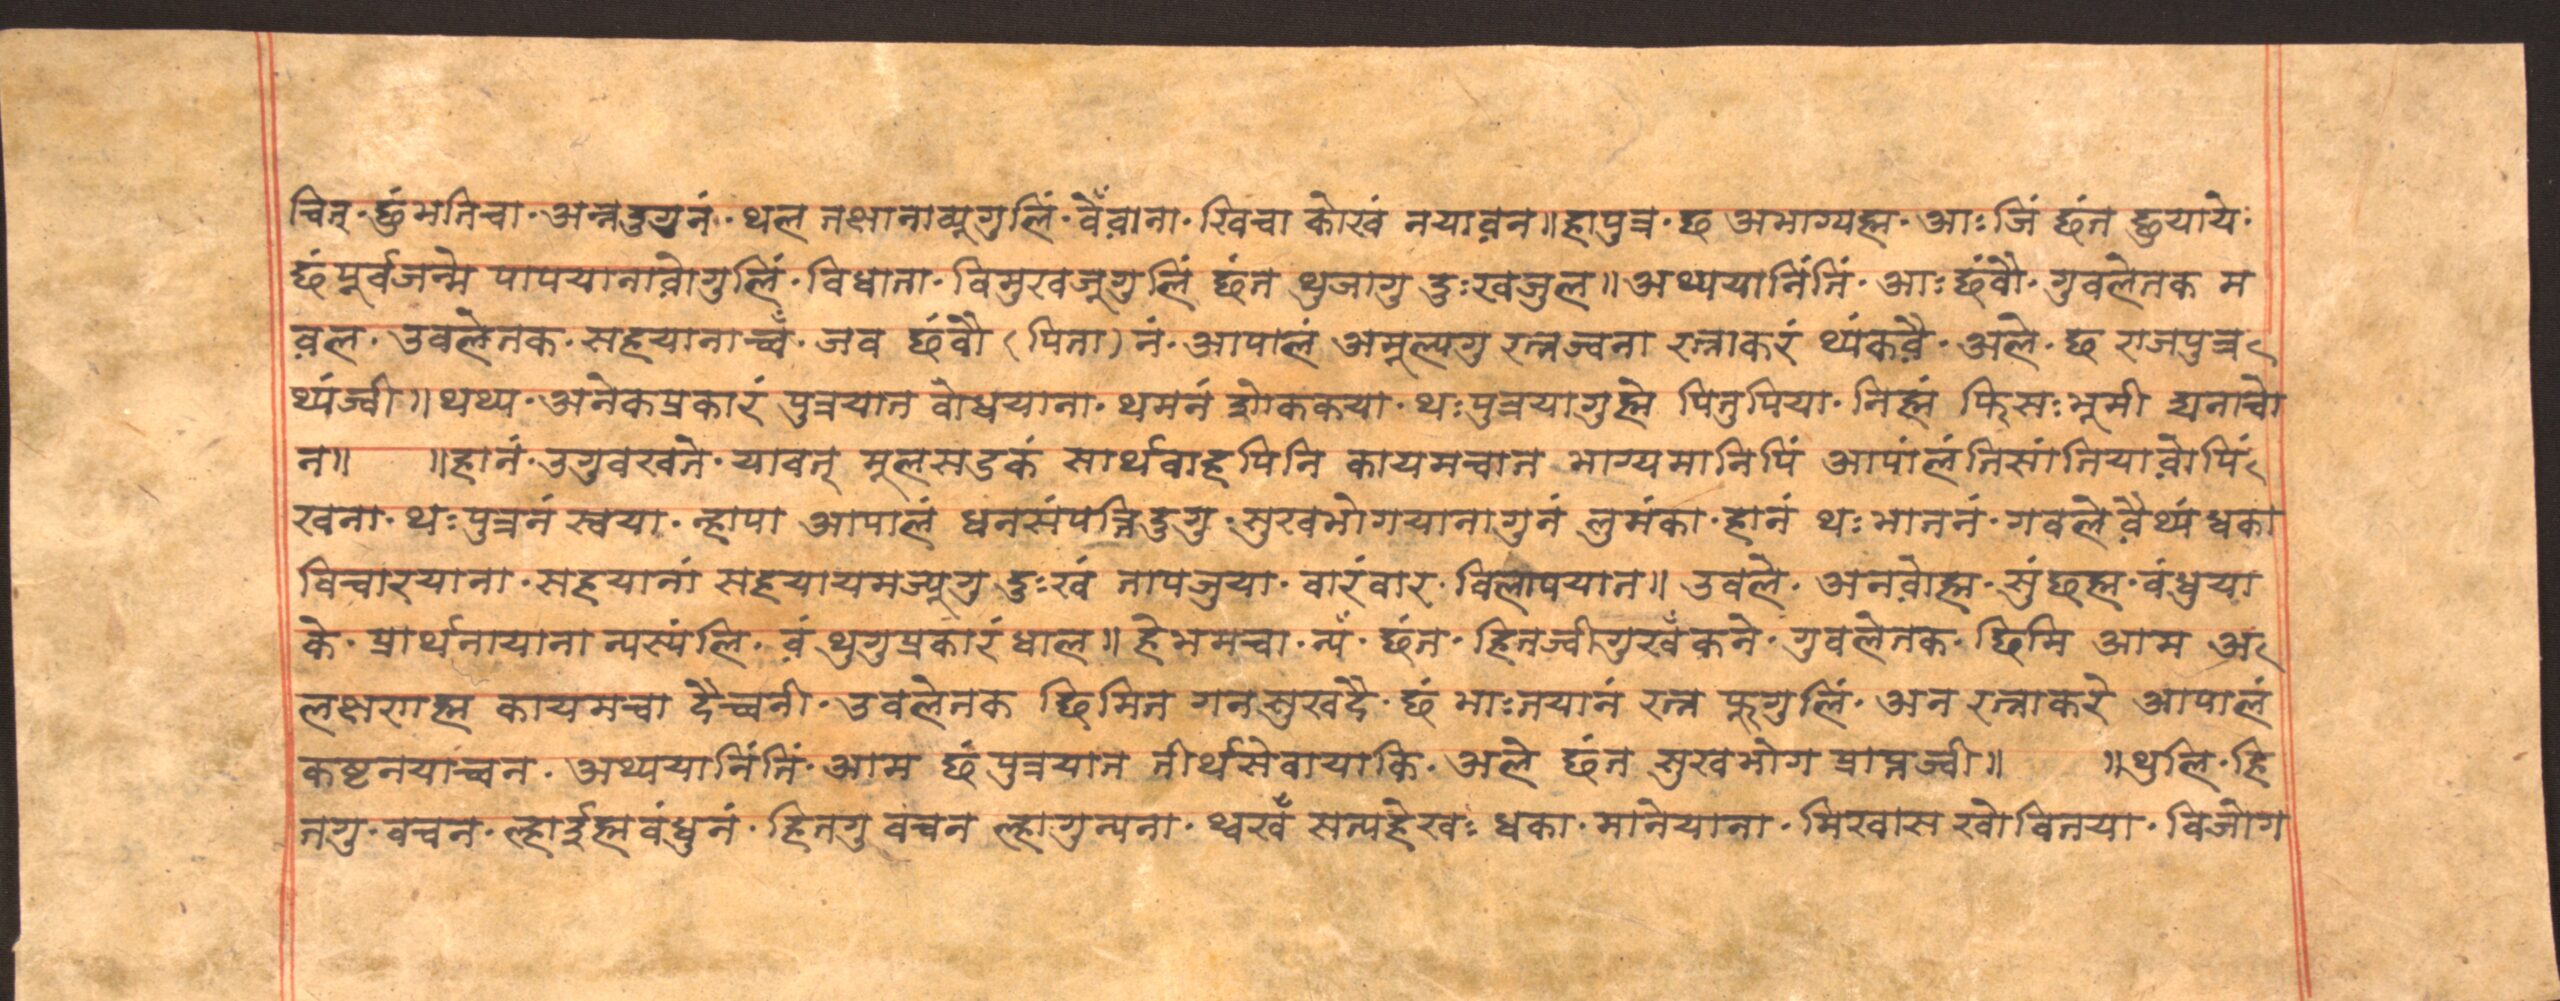 चित्·छुं भतिचा·अन्नदुगुनं·थल तक्षानाव्यूगुलिं·वैँव़ाना·खिचा कोखं नयाव़न॥हापुत्र·छ अभाग्यह्म·आः जिं छंत छुयाये·
छं पूर्वजन्मे पापयानाव़ोगुलिं·विधाता·विमुखजूगुलिं छंत थुजागु दुःखजुल॥अथ्ययानिंतिं·आः छंवौ·गुवलेतक म
व़ल·उवलेतक·सहयानाच्वँ·जव छंवौ (पिता) नं·आपालं अमूल्यगु रत्नज्वना रत्नाकरं थ्यंकव़ै·अले·छ राजपुत्र
थ्यंज्वी॥थथ्य·अनेकप्रकारं पुत्रयात वोधयाना·थमनं शोककया·थःपुत्रयागुह्मे पितुपिया·निह्मं फिसःभूमी द्यनाच्वो
न॥ ॥हानं·उगुवखते·यावत् मूलसडकं सार्थवाहपिनि कायमचात भाग्यमानिपिं आपांलंतिसांतियाव़ोपिं
खना·थःपुत्रनं स्वया·न्हापा आपालं धनसंपत्तिदुगु·सुखभोगयानागुनं लुमंका·हानं थःभातनं·गवलेव़ैथ्यं धका
विचारयाना·सहयानां सहयायमज्यूगु दुःखं तापजुया·वारंवार·विलापयात॥उवले·अनव़ोह्म·सुंछह्म·वंधुया
के·प्रार्थनायाना न्यस्यंलि·व़ं थुगुप्रकारं धाल॥हेभमचा·न्यँ·छंत·हितज्वीगुखँकने·गुवलेतक·छिमि आम अ
लक्षणाह्म कायमचा दैच्वनी·उवलेतक छिमित गनसुखदै·छं भाःतयानं रत्न फूगुलिं·अन रत्नाकरे आपालं
कष्टनयाच्वन·अथ्ययानिंतिं·आम छं पुत्रयात तीर्थसेवायाकि·अले छंत सुखभोग प्राप्तज्वी॥ ॥थुलि·हि
तगु·वचन·ल्हाईह्मवंधुनं·हितगु वचन ल्हागुन्यना·थ्वखँ सत्यहेखः धका·मानेयाना·मिखास खोवितया·विजोग